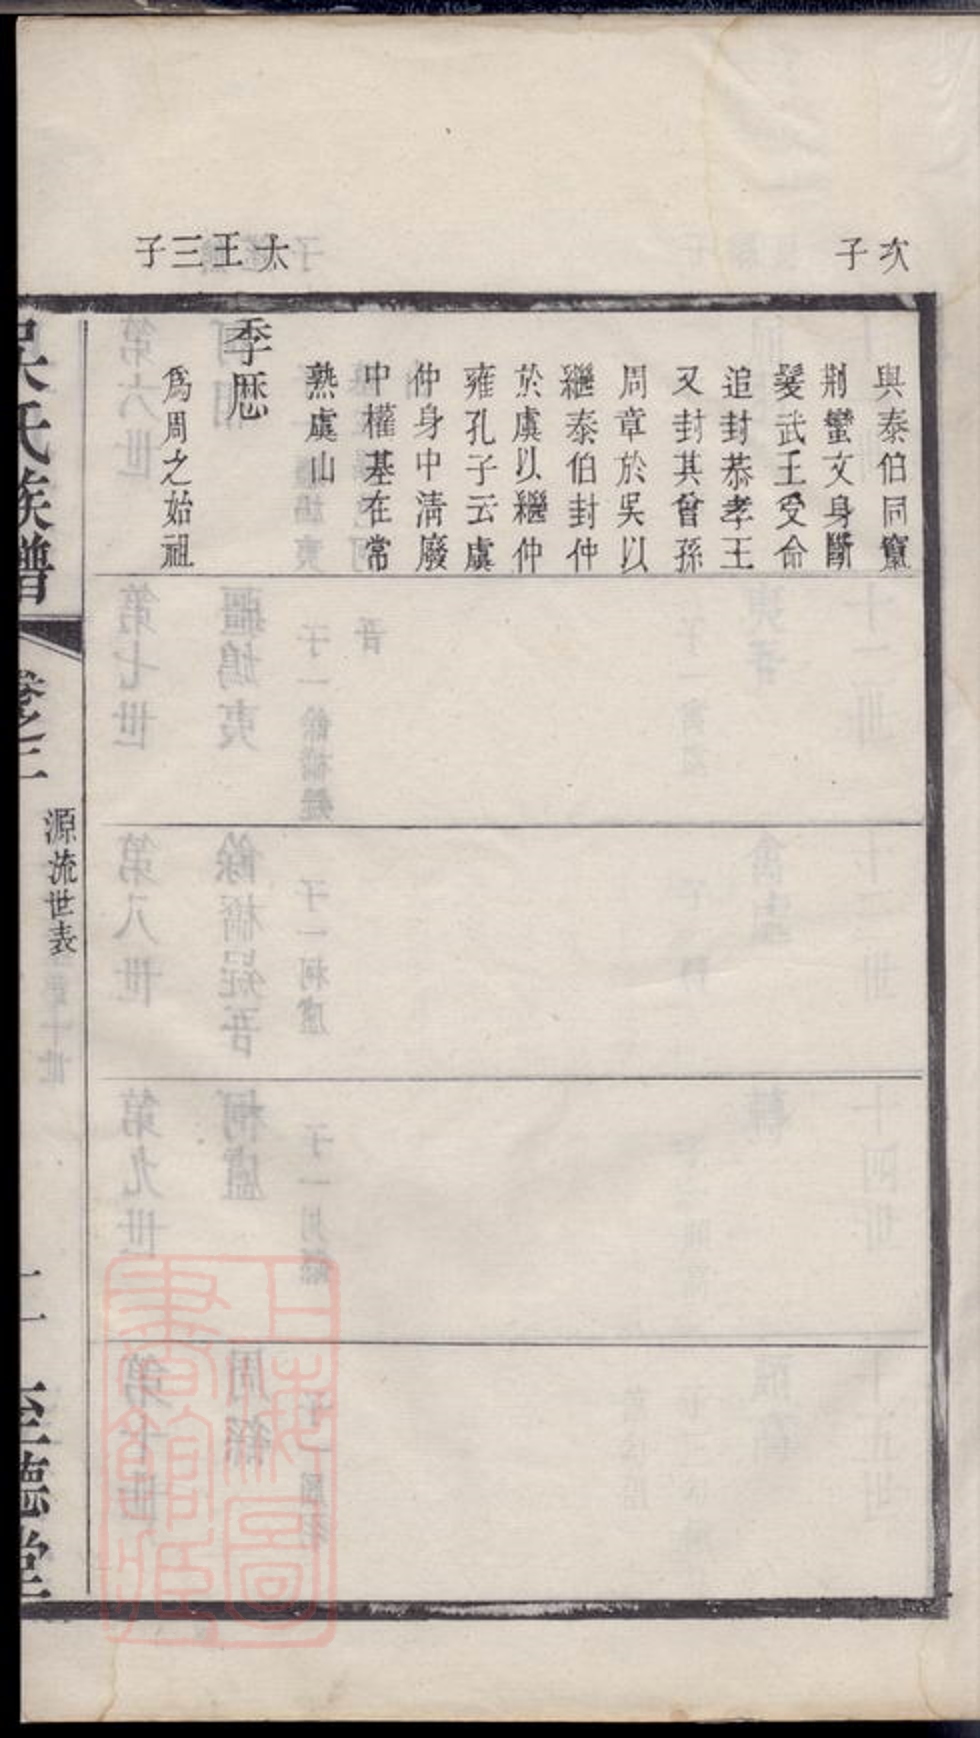 次子
與泰伯同竄
荆蠻文身斷
髮武王受命
追封恭孝王
又封其曾孫
周章於吳以
繼泰伯封仲
於虞以繼仲
雍孔子云虞
仲身中清廢
中權基在常
熟虞山
太王三子
季厯
爲周之始祖
吳氏族譜
卷之三
源流世表
二
至德堂
上海圖書館藏